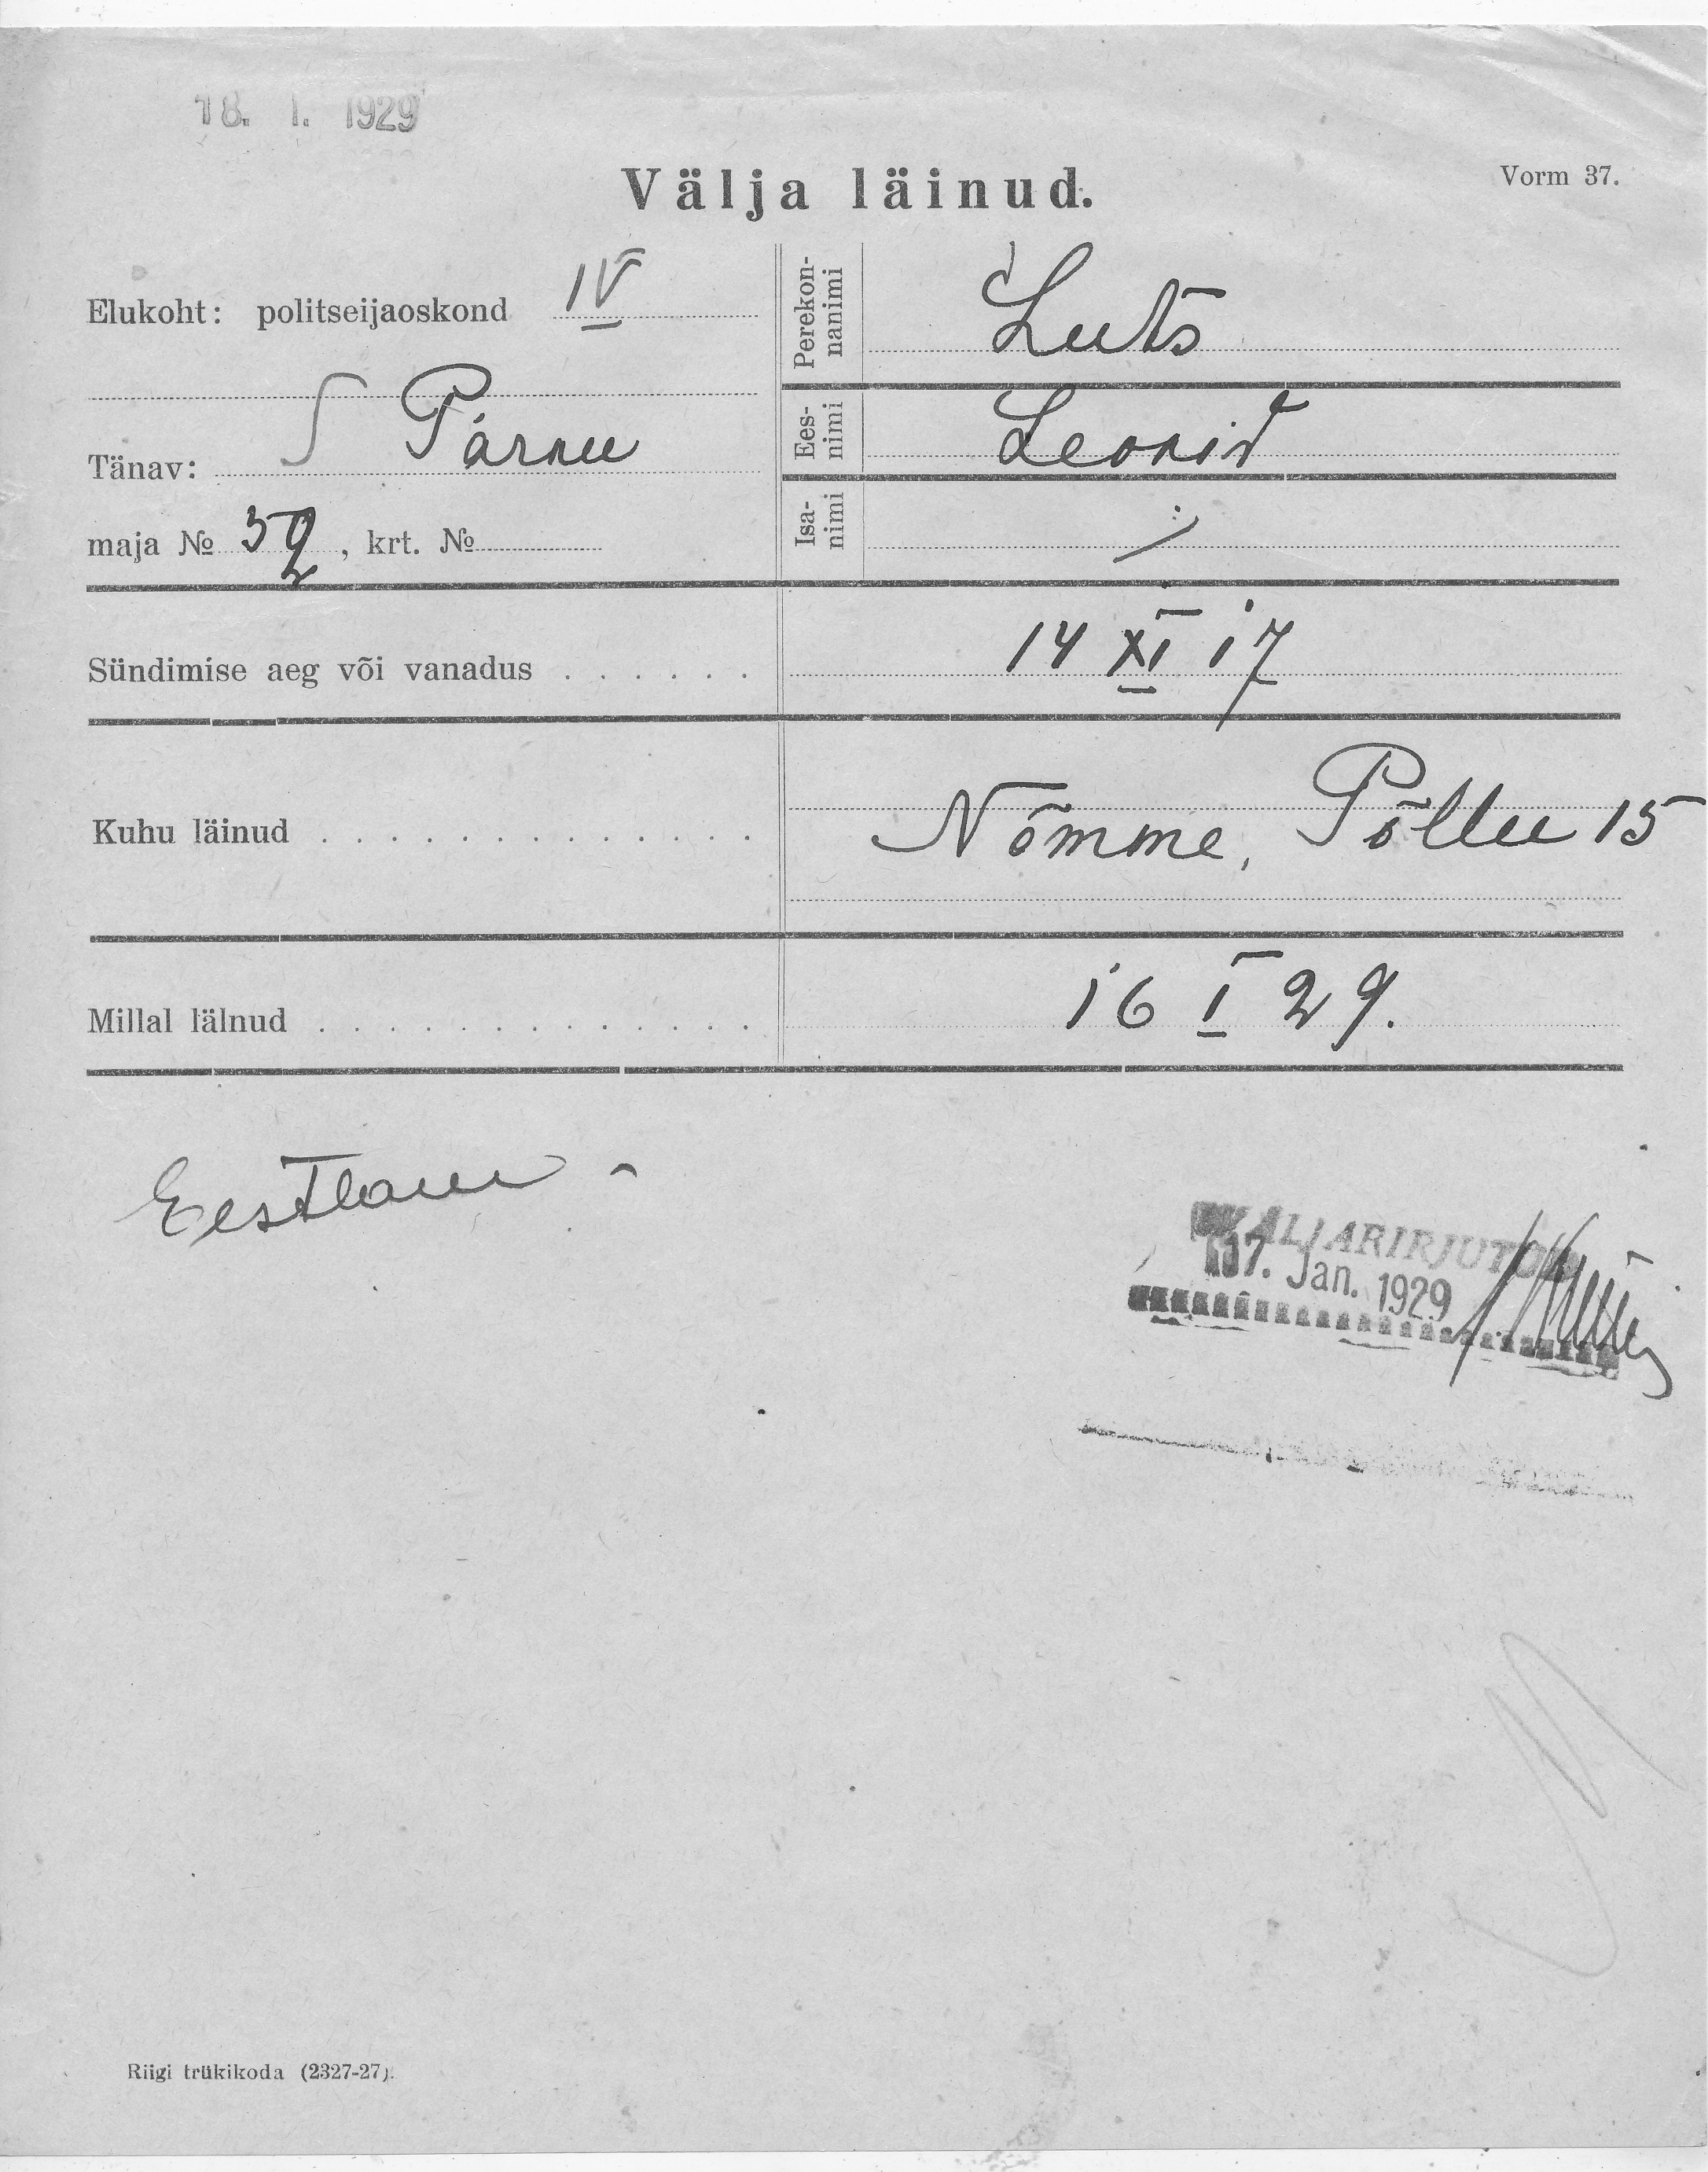 18. I. 1929
Välja läinud.
Vorm 37.
Elukoht: politseijaoskond IV
Tänav: S Pärnu
maja № 52, krt. №
Perekon-
nanimi
Luts
Ees-
nimi
Leonid
Isa-
nimi
Sündimise aeg või vanadus . . . . . . 14 XI 17
Kuhu läinud . . . . . . . . . . . . . Nõmme, Põllu 15
Millal lälnud . . . . . . . . . . . . . 16 I 29.
Eestlane
VÄLJAKIRJUTUD
17. Jan. 1929
Riigi trükikoda (2327-27).